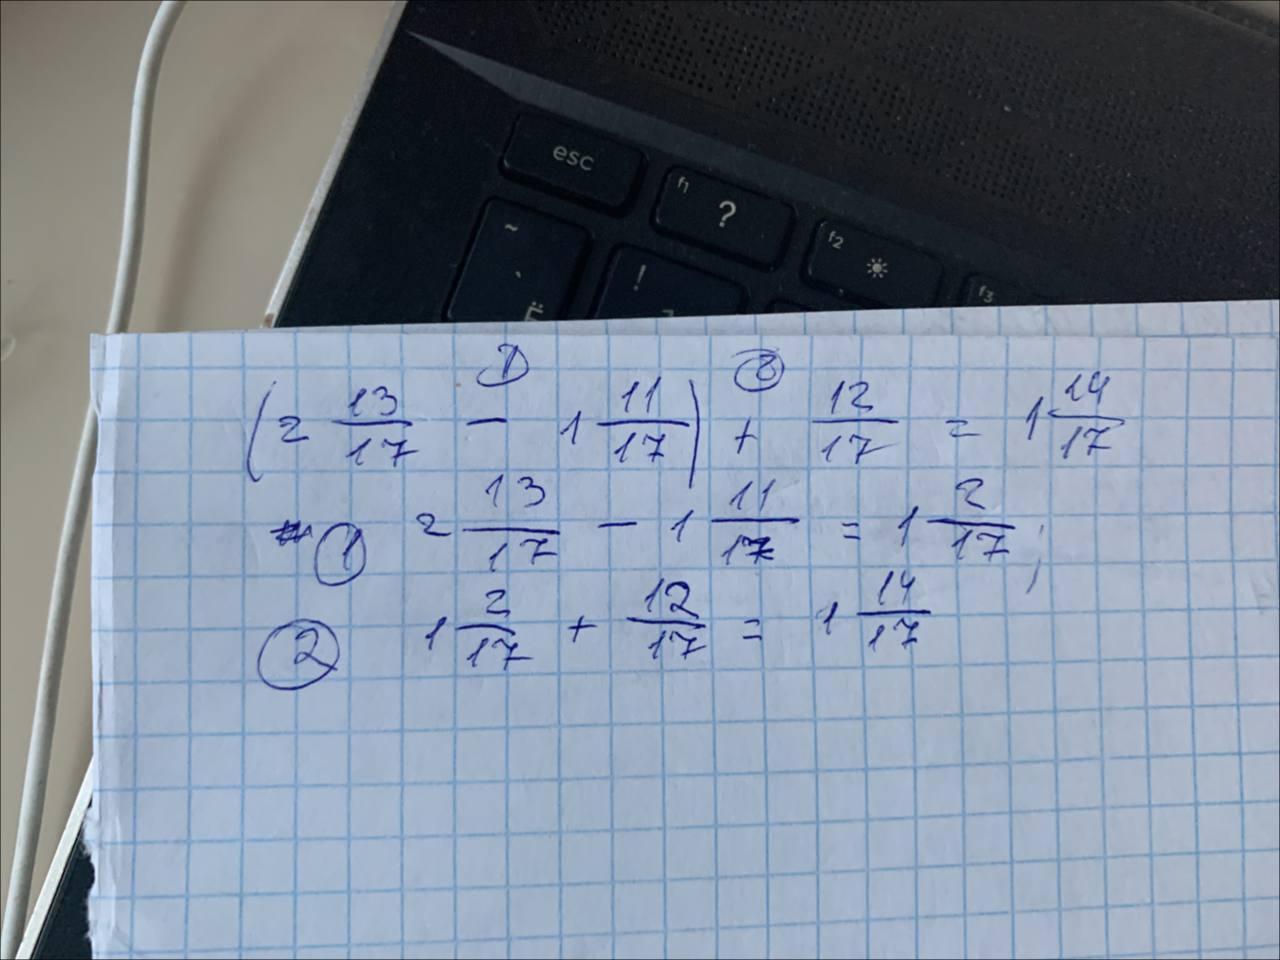 esc
f1 ?
f2
f3
~ !
` Ё
① ②
(2 13/17 - 1 11/17) + 12/17 = 1 14/17
① 2 13/17 - 1 11/17 = 1 2/17;
② 1 2/17 + 12/17 = 1 14/17